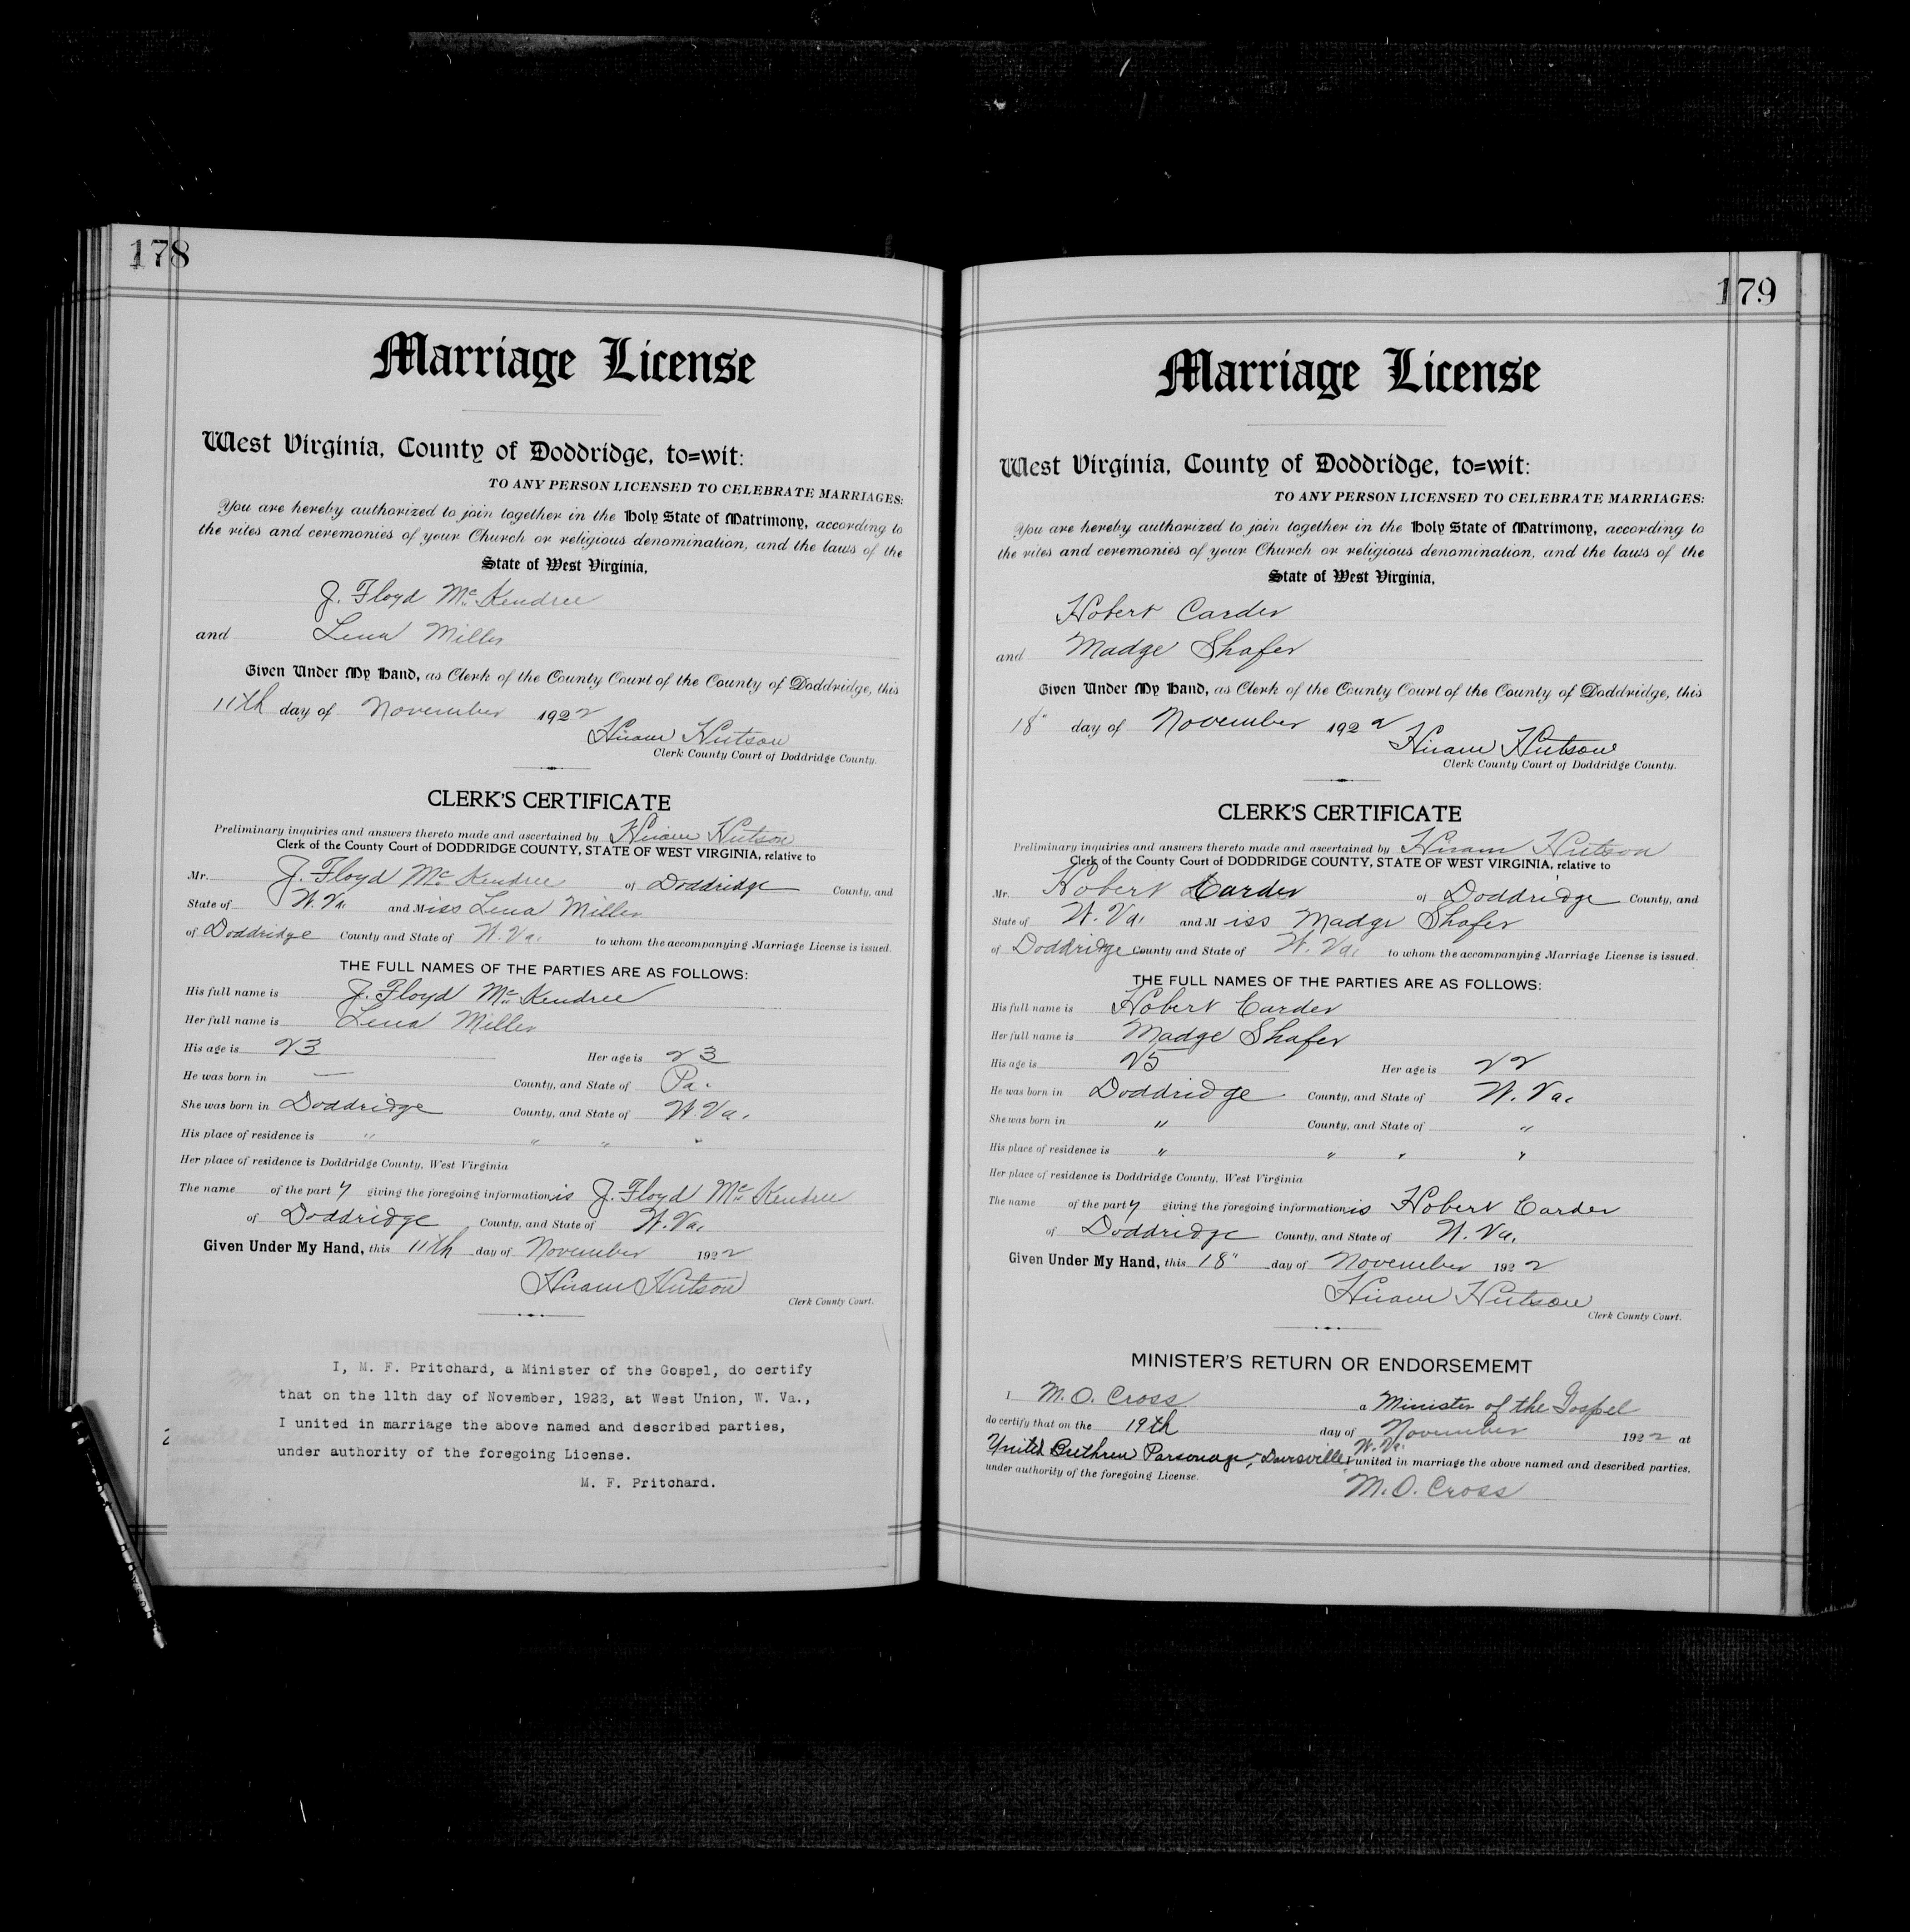 178
Marriage License
West Virginia, County of Doddridge, to=wit:
TO ANY PERSON LICENSED TO CELEBRATE MARRIAGES:
You are hereby authorized to join together in the Holy State of Matrimony, according to
the rites and ceremonies of your Church or religious denomination, and the laws of the
State of West Virginia,
J. Floyd McKendree
and Lena Miller
Given Under My Hand, as Clerk of the County Court of the County of Doddridge, this
11th day of November 1922
Hiram Hutson
Clerk County Court of Doddridge County.
CLERK'S CERTIFICATE
Preliminary inquiries and answers thereto made and ascertained by Hiram Hutson
Clerk of the County Court of DODDRIDGE COUNTY, STATE OF WEST VIRGINIA, relative to
Mr. J. Floyd McKendree of Doddridge County, and
State of W. Va. and Miss Lena Miller
of Doddridge County and State of W. Va. to whom the accompanying Marriage License is issued.
THE FULL NAMES OF THE PARTIES ARE AS FOLLOWS:
His full name is J. Floyd McKendree
Her full name is Lena Miller
His age is 23 Her age is 23
He was born in — County, and State of Pa.
She was born in Doddridge County, and State of W. Va.
His place of residence is " " " "
Her place of residence is Doddridge County, West Virginia
The name of the party giving the foregoing information is J. Floyd McKendree
of Doddridge County, and State of W. Va.
Given Under My Hand, this 11th day of November 1922
Hiram Hutson
Clerk County Court.
I, M. F. Pritchard, a Minister of the Gospel, do certify
that on the 11th day of November, 1922, at West Union, W. Va.,
I united in marriage the above named and described parties,
under authority of the foregoing License.
M. F. Pritchard.
179
Marriage License
West Virginia, County of Doddridge, to=wit:
TO ANY PERSON LICENSED TO CELEBRATE MARRIAGES:
You are hereby authorized to join together in the Holy State of Matrimony, according to
the rites and ceremonies of your Church or religious denomination, and the laws of the
State of West Virginia,
Hobert Carder
and Madge Shafer
Given Under My Hand, as Clerk of the County Court of the County of Doddridge, this
18" day of November 1922
Hiram Hutson
Clerk County Court of Doddridge County.
CLERK'S CERTIFICATE
Preliminary inquiries and answers thereto made and ascertained by Hiram Hutson
Clerk of the County Court of DODDRIDGE COUNTY, STATE OF WEST VIRGINIA, relative to
Mr. Hobert Carder of Doddridge County, and
State of W. Va. and Miss Madge Shafer
of Doddridge County and State of W. Va. to whom the accompanying Marriage License is issued.
THE FULL NAMES OF THE PARTIES ARE AS FOLLOWS:
His full name is Hobert Carder
Her full name is Madge Shafer
His age is 25 Her age is 22
He was born in Doddridge County, and State of W. Va.
She was born in " County, and State of "
His place of residence is " " " "
Her place of residence is Doddridge County, West Virginia
The name of the party giving the foregoing information is Hobert Carder
of Doddridge County, and State of W. Va.
Given Under My Hand, this 18" day of November 1922
Hiram Hutson
Clerk County Court.
MINISTER'S RETURN OR ENDORSEMEMT
I M. O. Cross a Minister of the Gospel
do certify that on the 19th day of November 1922 at
United Brethren Parsonage, W. Va. I united in marriage the above named and described parties,
under authority of the foregoing License.
M. O. Cross